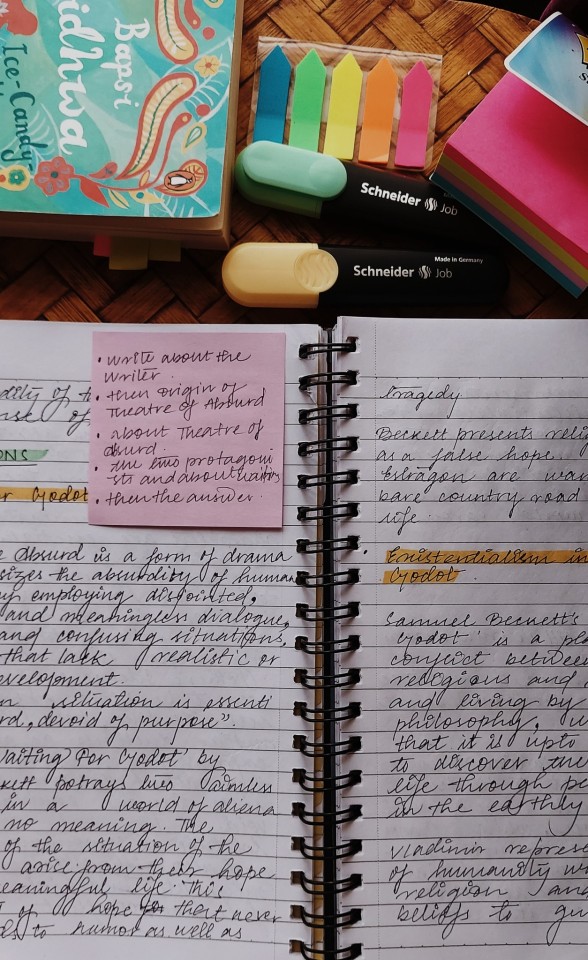 Bapsi
idhwa
Ice-Candy
Schneider Job
Made in Germany
Schneider Job
• write about the
writer.
• then origin of
Theatre of Absurd
• about Theatre of
absurd.
• the two protagoni
sts and about waiting
• then the answer.
dity of t
nse of
ONS
r Godot
e Absurd is a form of drama
sizes the absurdity of human
y employing disjointed,
and meaningless dialogue,
and confusing situations,
that lack realistic or
evelopment.
n situation is essenti
rd, devoid of purpose".
Waiting For Godot' by
kett potrays two aimless
in a world of aliena
no meaning. The
of the situation of the
arise from their hope
eaningful life. This
t of hope for that never
ds to humor as well as
tragedy
Beckett presents reli
as a false hope.
Estragon are wan
bare country road
life.
• Existentialism in
Godot.
Samuel Beckett's
Godot' is a pl
conflict betwee
religious and
and living by
philosophy.
that it is upto
to discover the
life through p
in the earthly
Vladimir represe
of humanity w
religion and
beliefs to gu